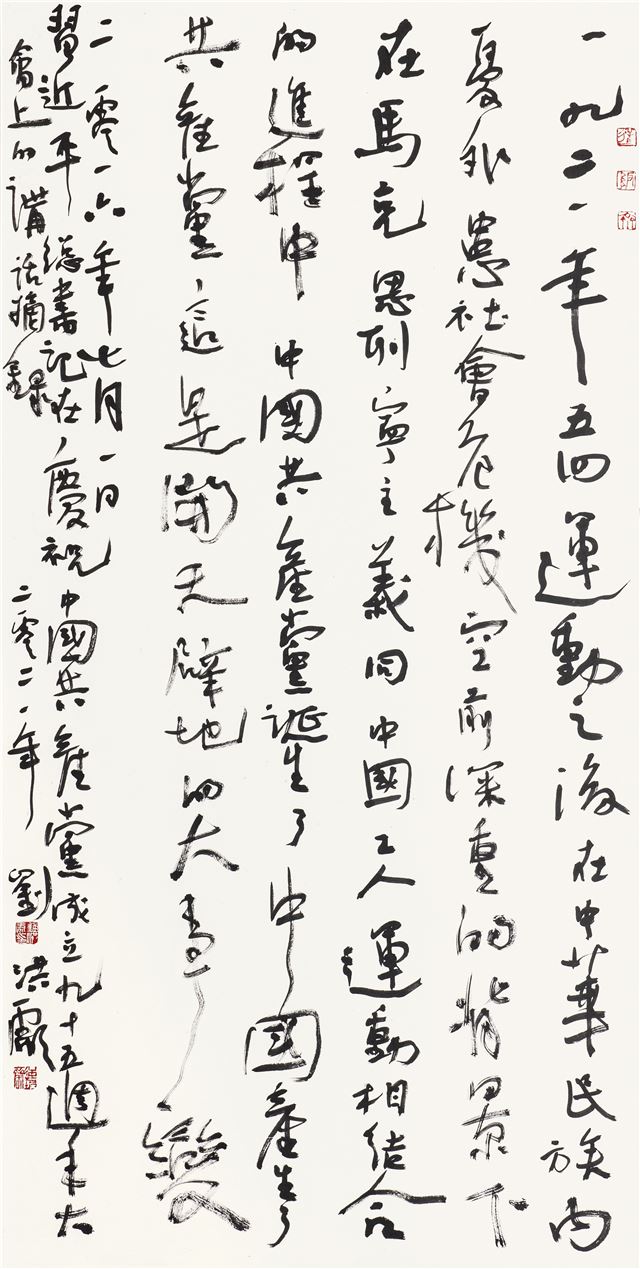 一九二一年五四運動之後在中華民族内
憂外患社會危機空前深重的背景下
在馬克思列寧主義同中國工人運動相結合
的進程中中國共產黨誕生了中國產生了
共產黨這是開天辟地的大事變
二零一六年七月一日
習近平總書記在慶祝中國共產黨成立九十五週年大
會上的講話摘錄
二零二一年劉洪彪